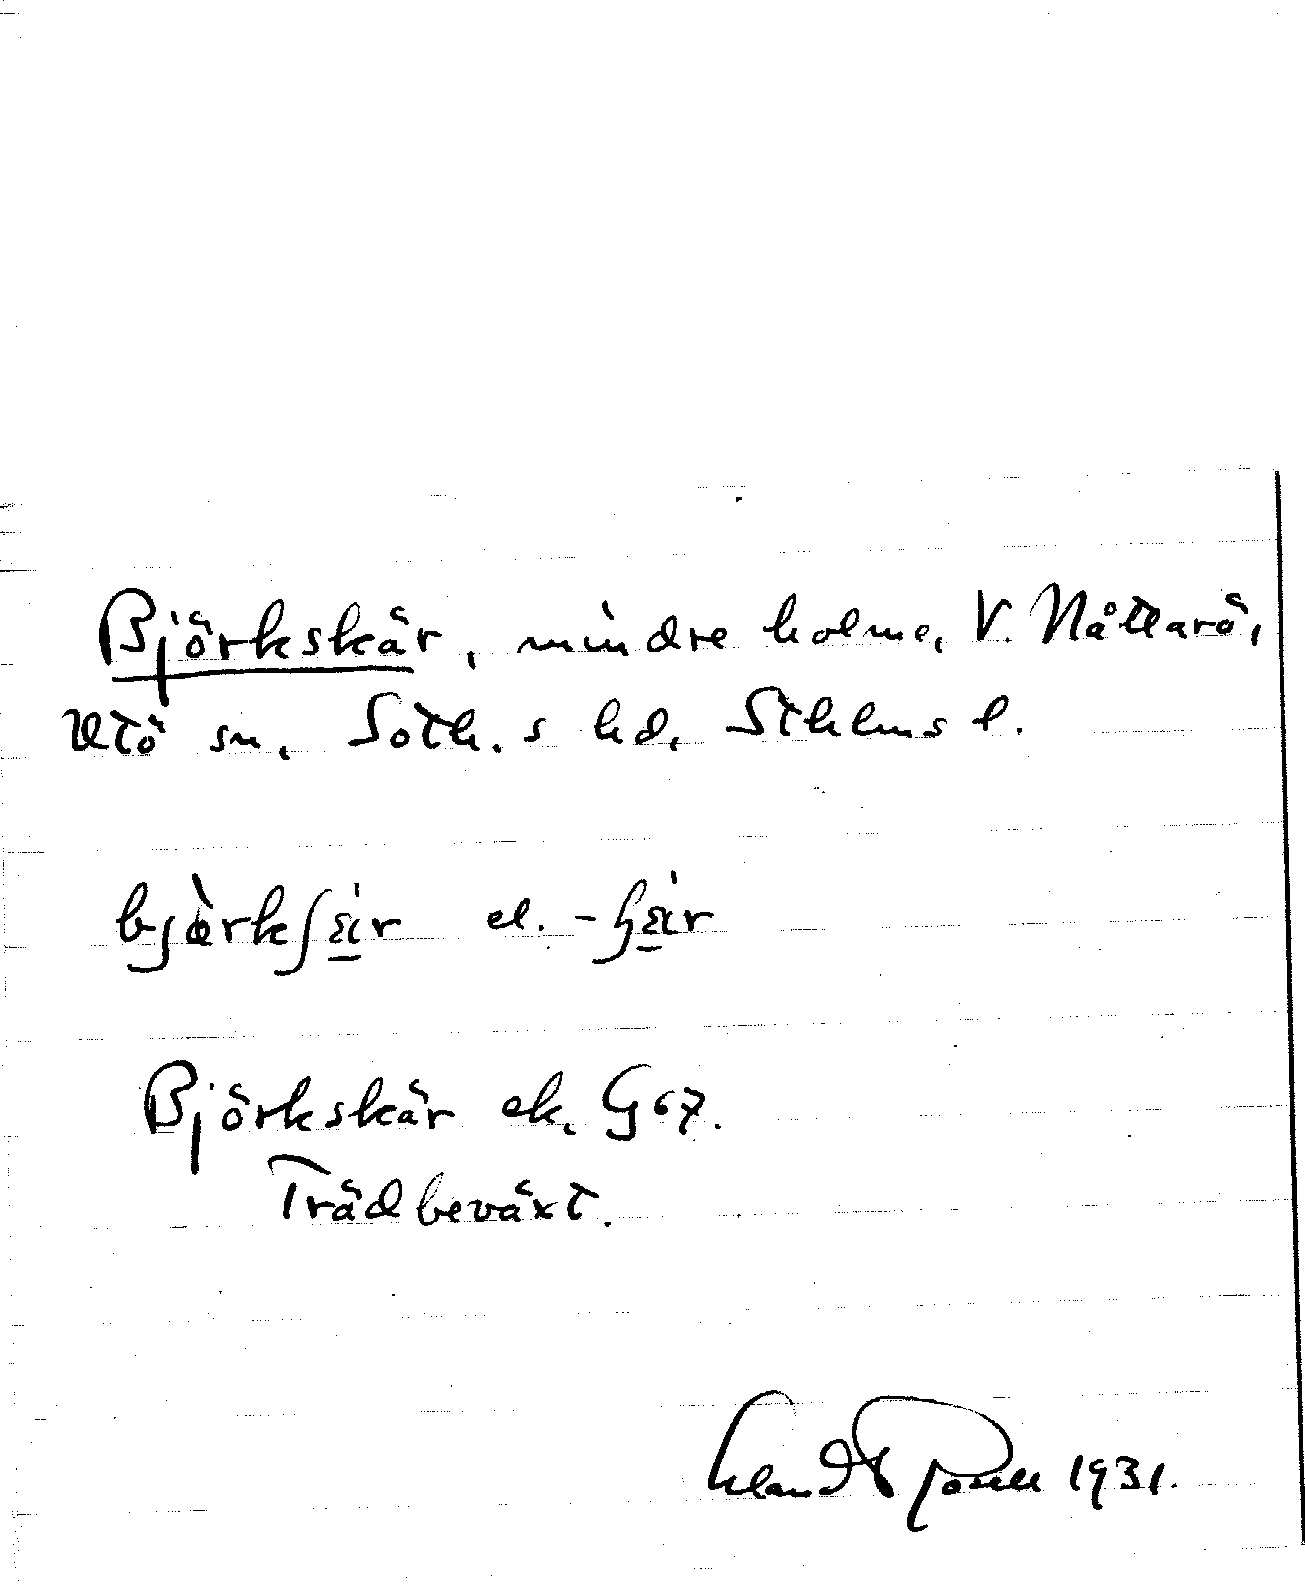 Björkskär, mindre holme, V. Nåttarö,
Utö sn, Soth.s hd, Sthlms l.
el.
Björkskär ek. G 67.
Trädbeväxt.
Erland Rosell 1931.